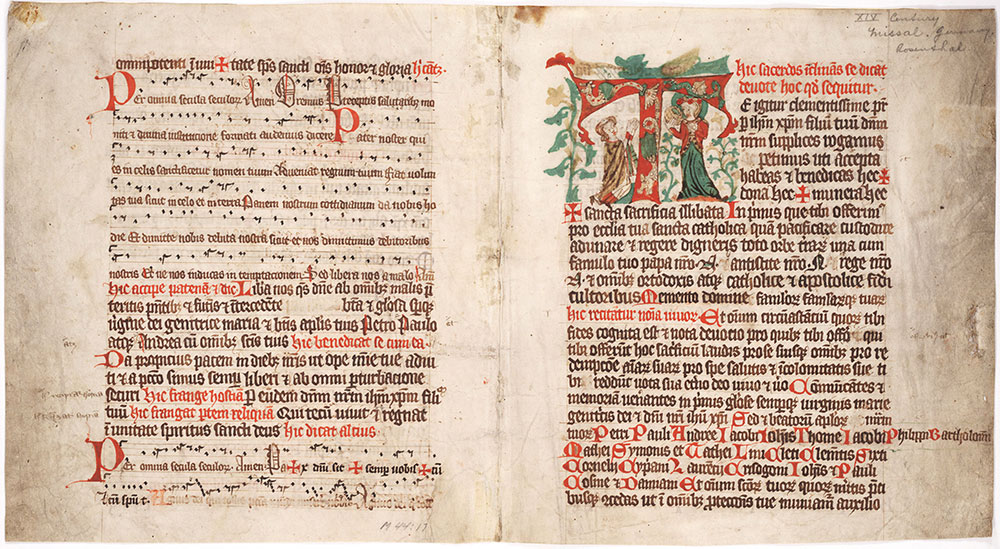 omnipotenti ĩ uni✝tate sp̃s sancti oñis honor ⁊ gloria
Per omnia secula seculoꝝ. Amen Oremus Preceptis salutaribꝫ mo
niti ⁊ divina institucione formati audemus dicere Pater noster qui
es in celis sanctificetur nomen tuum Adveniat regnum tuum fiat volun
tas tua sicut in celo et in terra Panem nostrum cottidianum da nobis ho
die Et dimitte nobis debita nostra sicut et nos dimittimus debitoribus
nostris Et ne nos inducas in temptacionem Sed libera nos a malo
hic accipe patenã ⁊ dic Liba nos q̃s dñe ab omibꝫ malis
teritis ⁊ futis ⁊ ĩtercedẽte bt̃a ⁊ gl̃osa
ṽgĩne dei genitrice maria ⁊ bt̃is apl̃is tuis Petro Paulo
atqꝫ Andrea cũ omĩbꝫ sc̃tis tuis hic benedicat se cum ea
Da propicius pacem in diebꝫ nr̃is ut ope mĩe tue adiu
ti ⁊ a pcc̃o simus semꝑ liberi ⁊ ab omni ꝑturbacione
securi hic frange hostiã ꝑ eundem dñm nr̃m ihm̃ xp̃m fili
tuũ hic frangat ptem reliquã Qui tecũ vivit ⁊ regnat
ĩ unitate spiritus sancti deus hic dicat altius
Per omnia secula seculoꝝ. Amen. Pa✝x dñi sit ✝ semꝑ vobis✝cũ
Et cũ spũ t.
M 44:17
XIV Century
Missal. Germany.
Rosenthal
hic sacerdos se dicat
devote hoc qd̃ sequitur
TE igitur clementissime pr̃
ꝑ ihm̃ xp̃m filiũ tuũ dñm
nr̃m supplices rogamus
⁊ petimus uti accepta
habeas ⁊ benedicas hec ✝
dona hec ✝ munera hec
✝ sancta sacrificia illibata In pĩmis que tibi offerim̃
pro ecclĩa tua sancta catholica quã pacificare custodire
adunare ⁊ regere digneris toto orbe una cum
famulo tuo papa nr̃o .N. antistite nr̃o .N. rege nr̃o
.N. ⁊ omĩbꝫ ortodoxis atqꝫ catholice ⁊ apostolice fidei
cultoribus Memento domine famuloꝝ famlarꝫqꝫ tuaꝝ
hic recitatur noĩa vivoꝝ Et oĩum circũstãciũ quoꝝ tibi
fides cognita est ⁊ nota devotio pro quibꝫ tibi offeri ṽl qui
tibi offerũt hoc sacͥficiũ laudis pro se suisqꝫ omĩbꝫ pro re
dempcõe aĩaꝝ suaꝝ pro spe salutis ⁊ ĩcolomitatis sue ti
bi reddũt vota sua et̃no deo vivo ⁊ ṽo Cõmũicãtes ⁊
memoriã venerantes in pĩmis gl̃ose semperqꝫ virginis marie
genitricis dei ⁊ dñi nr̃i ihũ xp̃i Sed ⁊ beatorũ apl̃oꝝ
tuoꝝ Petri Pauli Andree Jacobi Joh̃is Thome Jacobi Philippi Bartholomei
Mathei Symonis et Tathei Lini Cleti Clemẽtis Sixti
Cornelij Cypani Laurẽtij Crisogoni Joh̃is ⁊ Pauli
Cosme ⁊ Damiani Et oĩum sc̃oꝝ tuoꝝ quoꝝ mĩtis pͥci
busqꝫ ↄcedas ut ĩ omĩbꝫ ꝓtectõis tue muniam̃ auxilio